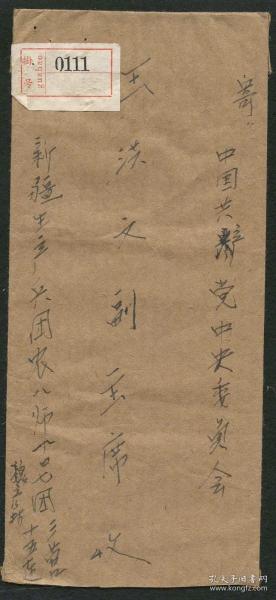 寄：
中国共产党中央委员会
王洪文副主席 收
新疆生产兵团农八师一四七团三营
十五连
挂号
guahao
0111
孔夫子旧书网